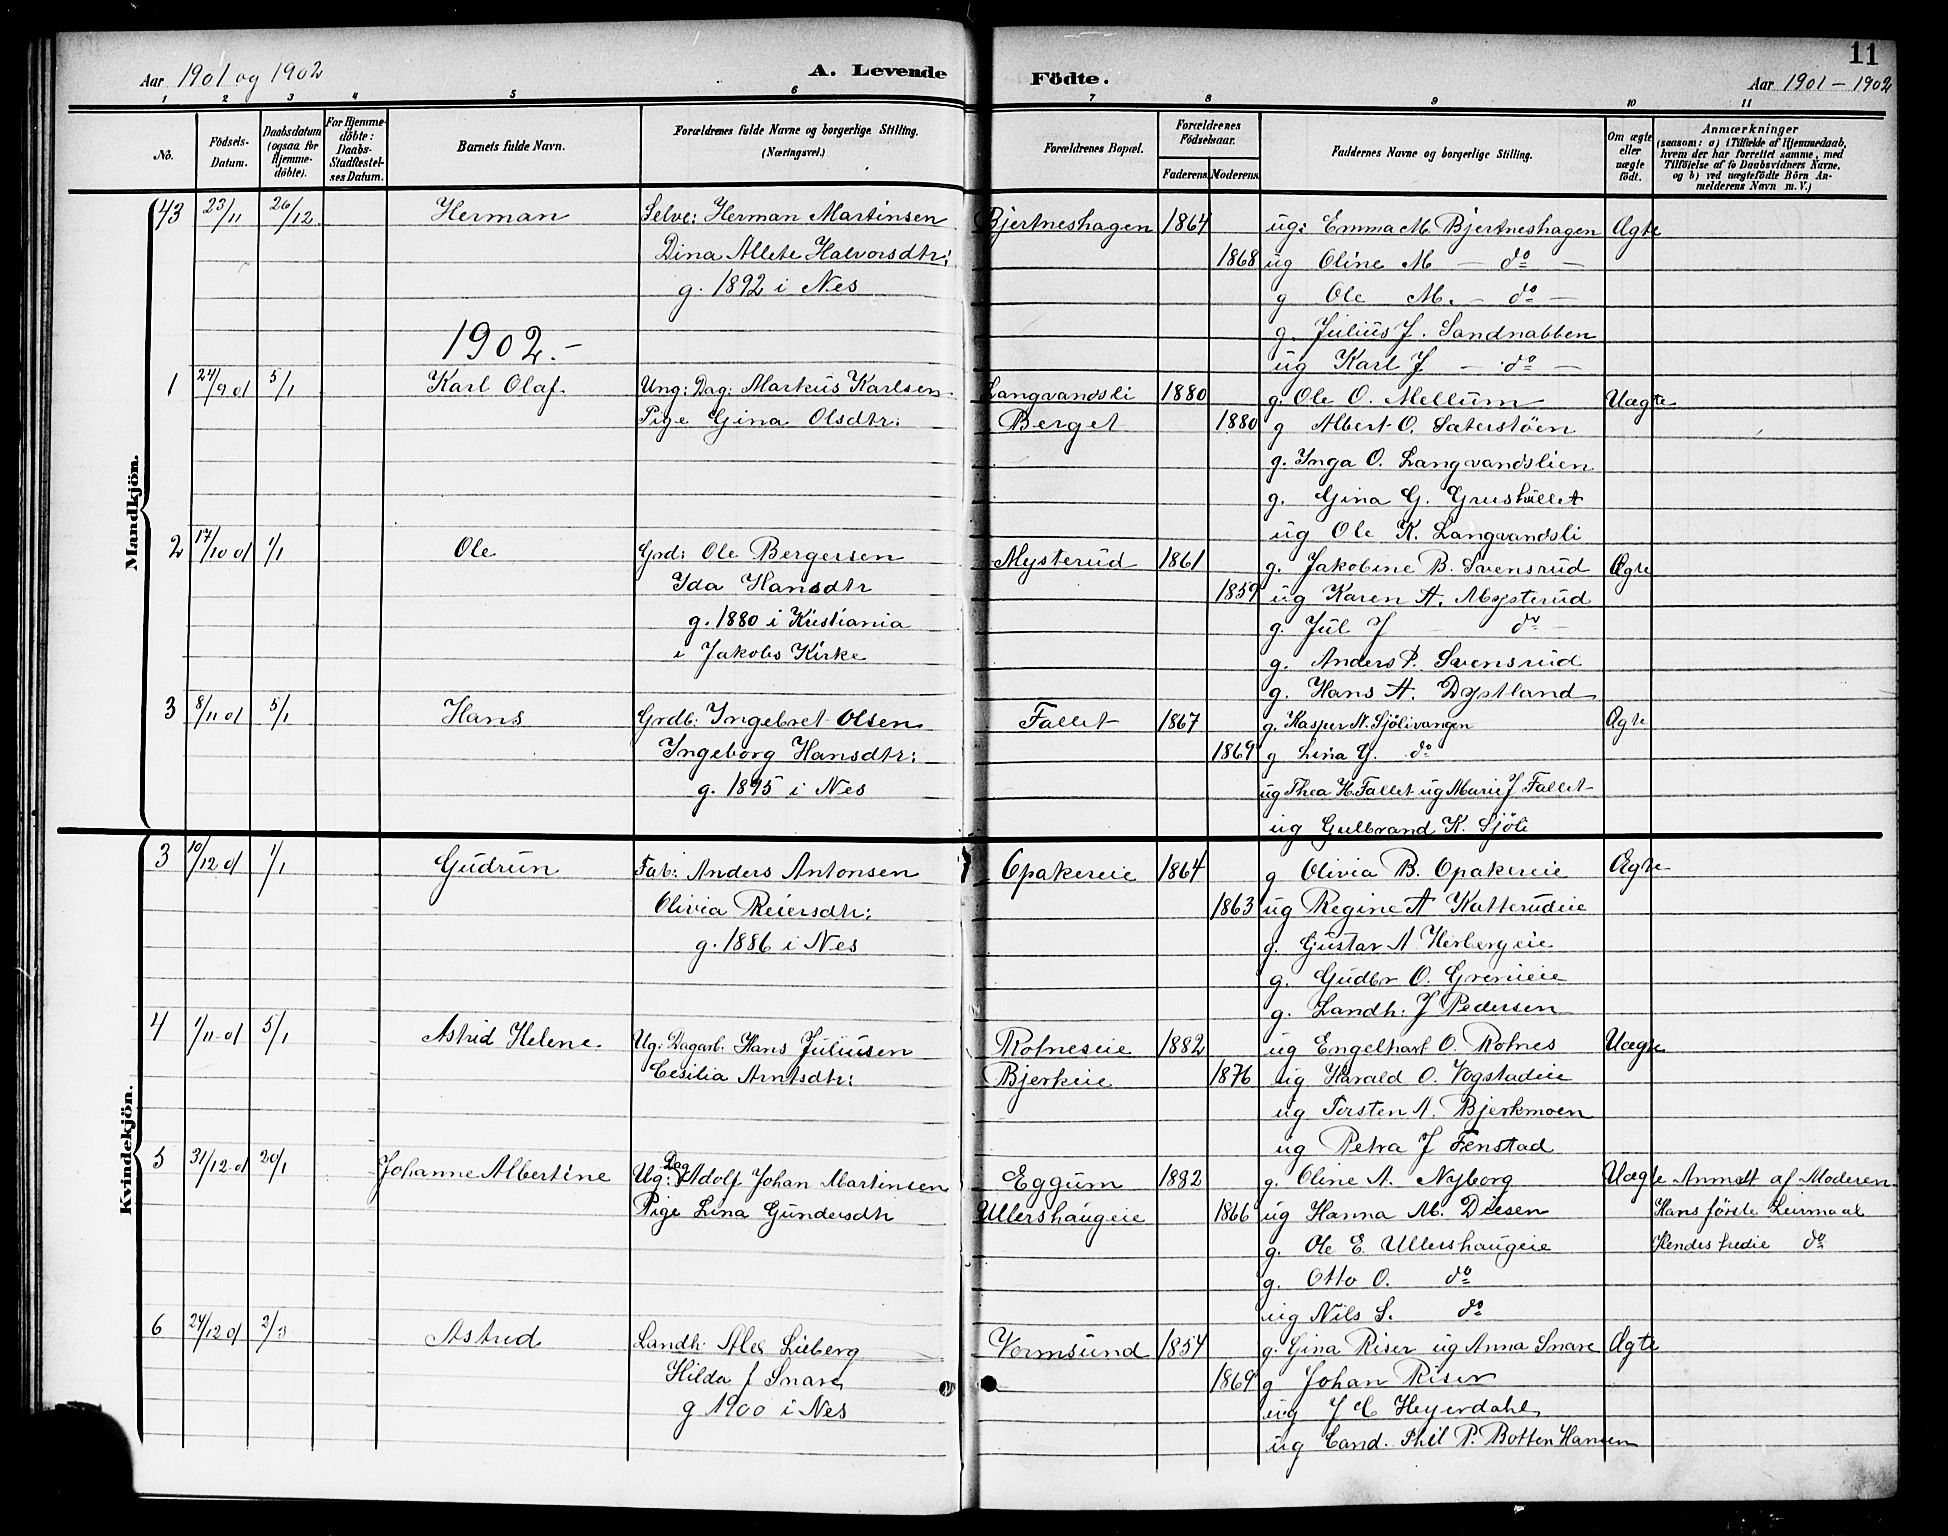 11
Aar 1901 og 1902
A. Levende Födte.
Aar 1901 - 1902
1 2 3 4 5 6 7 8 9 10 11
No.
Födsels-Datum.
Daabsdatum (ogsaa for Hjemmedöbte).
For Hjemmedöbte: Daabs-Stadfæstelses Datum.
Barnets fulde Navn.
Forældrenes fulde Navne og borgerlige Stilling. (Næringsvei.)
Forældrenes Bopæl.
Forældrenes Födselsaar.
Faderens. Moderens.
Faddernes Navne og borgerlige Stilling.
Om ægte eller uægte födt.
Anmærkninger
(saasom: a) i Tilfælde af Hjemmedaab, hvem der har forrettet samme, med Tilföielse af to Daabsvidners Navne, og b) ved uægtefödte Börn Anmelderens Navn m. V.)
Mandkjön.
43 23/11 26/12 Herman Selve: Herman Martinsen Bjertneshagen 1864 ug: Emma M. Bjertneshagen Ægte
Dina Allete Halvorsdtr: 1868 ug Oline M — do —
g. 1892 i Nes g Ole M. — do —
g. Julius J. Sandnabben
1902.- ug Karl J — do —
1 24/9 01 5/1 Karl Olaf Ung: Dag: Markus Karlsen Langvandsli 1880 g. Ole O. Mellum Uægte
Pige Gina Olsdtr: Berget 1880 g Albert O. Sæterstöen
g. Inga O. Langvandslien
g. Gina G. Grushullet
ug Ole K. Langvandsli
2 17/10 01 1/1 Ole Grd: Ole Bergersen Mysterud 1861 g. Jakobine B. Svensrud Ægte
Ida Hansdtr 1859 ug Karen A. Mysterud
g. 1880 i Kristiania g. Jul J — do —
i Jakobs Kirke g. Anders P. Svensrud
g. Hans A. Dystland
3 8/11 01 5/1 Hans Grdb: Ingebret Olsen Fallet 1867 g. Kasper N. Sjölivangen Ægte
Ingeborg Hansdtr: 1869 g Lina G. do
g. 1895 i Nes ug Thea H. Fallet ug Marie J Fallet
ug Gulbrand K. Sjöli
Kvindekjön.
3 10/12 01 1/1 Gudrun Fab: Anders Antonsen Opakereie 1864 g Olivia B. Opakereie Ægte
Olivia Reiersdtr: 1863 ug Regine A Katterudeie
g. 1886 i Nes g. Gustav A. Herbergeie
g. Gudbr O. Grenieie
g. Landh: J Pedersen
4 1/11 01 5/1 Astrid Helene. Ug: Dagarb. Hans Juliusen Rotneseie 1882 ug Engelhart O. Rotnes Uægte
Cesilia Arntsdtr: Bjerkeie 1876 ug Harald O. Vogstadeie
ug Torsten A. Bjerkmoen
ug Petra J Fenstad
5 31/12 01 20/1 Johanne Albertine Ug: Dag Adolf Johan Martinsen Eggum 1882 g. Oline A. Nyborg Uægte Anmeldt af Moderen
Pige Lina Gundersdtr Ullershaugeie 1866 ug Hanna M. Diesen Hans förste Leirmaal
g. Ole E. Ullershaugeie Hendes tredie do
g. Otto O. do
ug Nils S. do
6 24/12 01 2/3 Astrid Landh: Alex Lieberg Vormsund 1854 g. Gina Riser ug Anna Snare Ægte
Hilda f Snare 1869 g Johan Riser
g 1900 i Nes ug J C Heyerdahl
ug Cand. Phil P. Botten Hansen